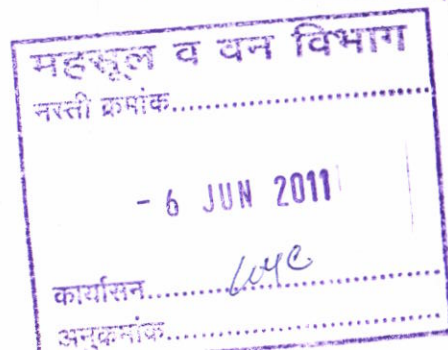 महसूल व वन विभाग
नस्ती क्रमांक..............................
- 6 JUN 2011
कार्यासन..............................
अनुक्रमांक..............................